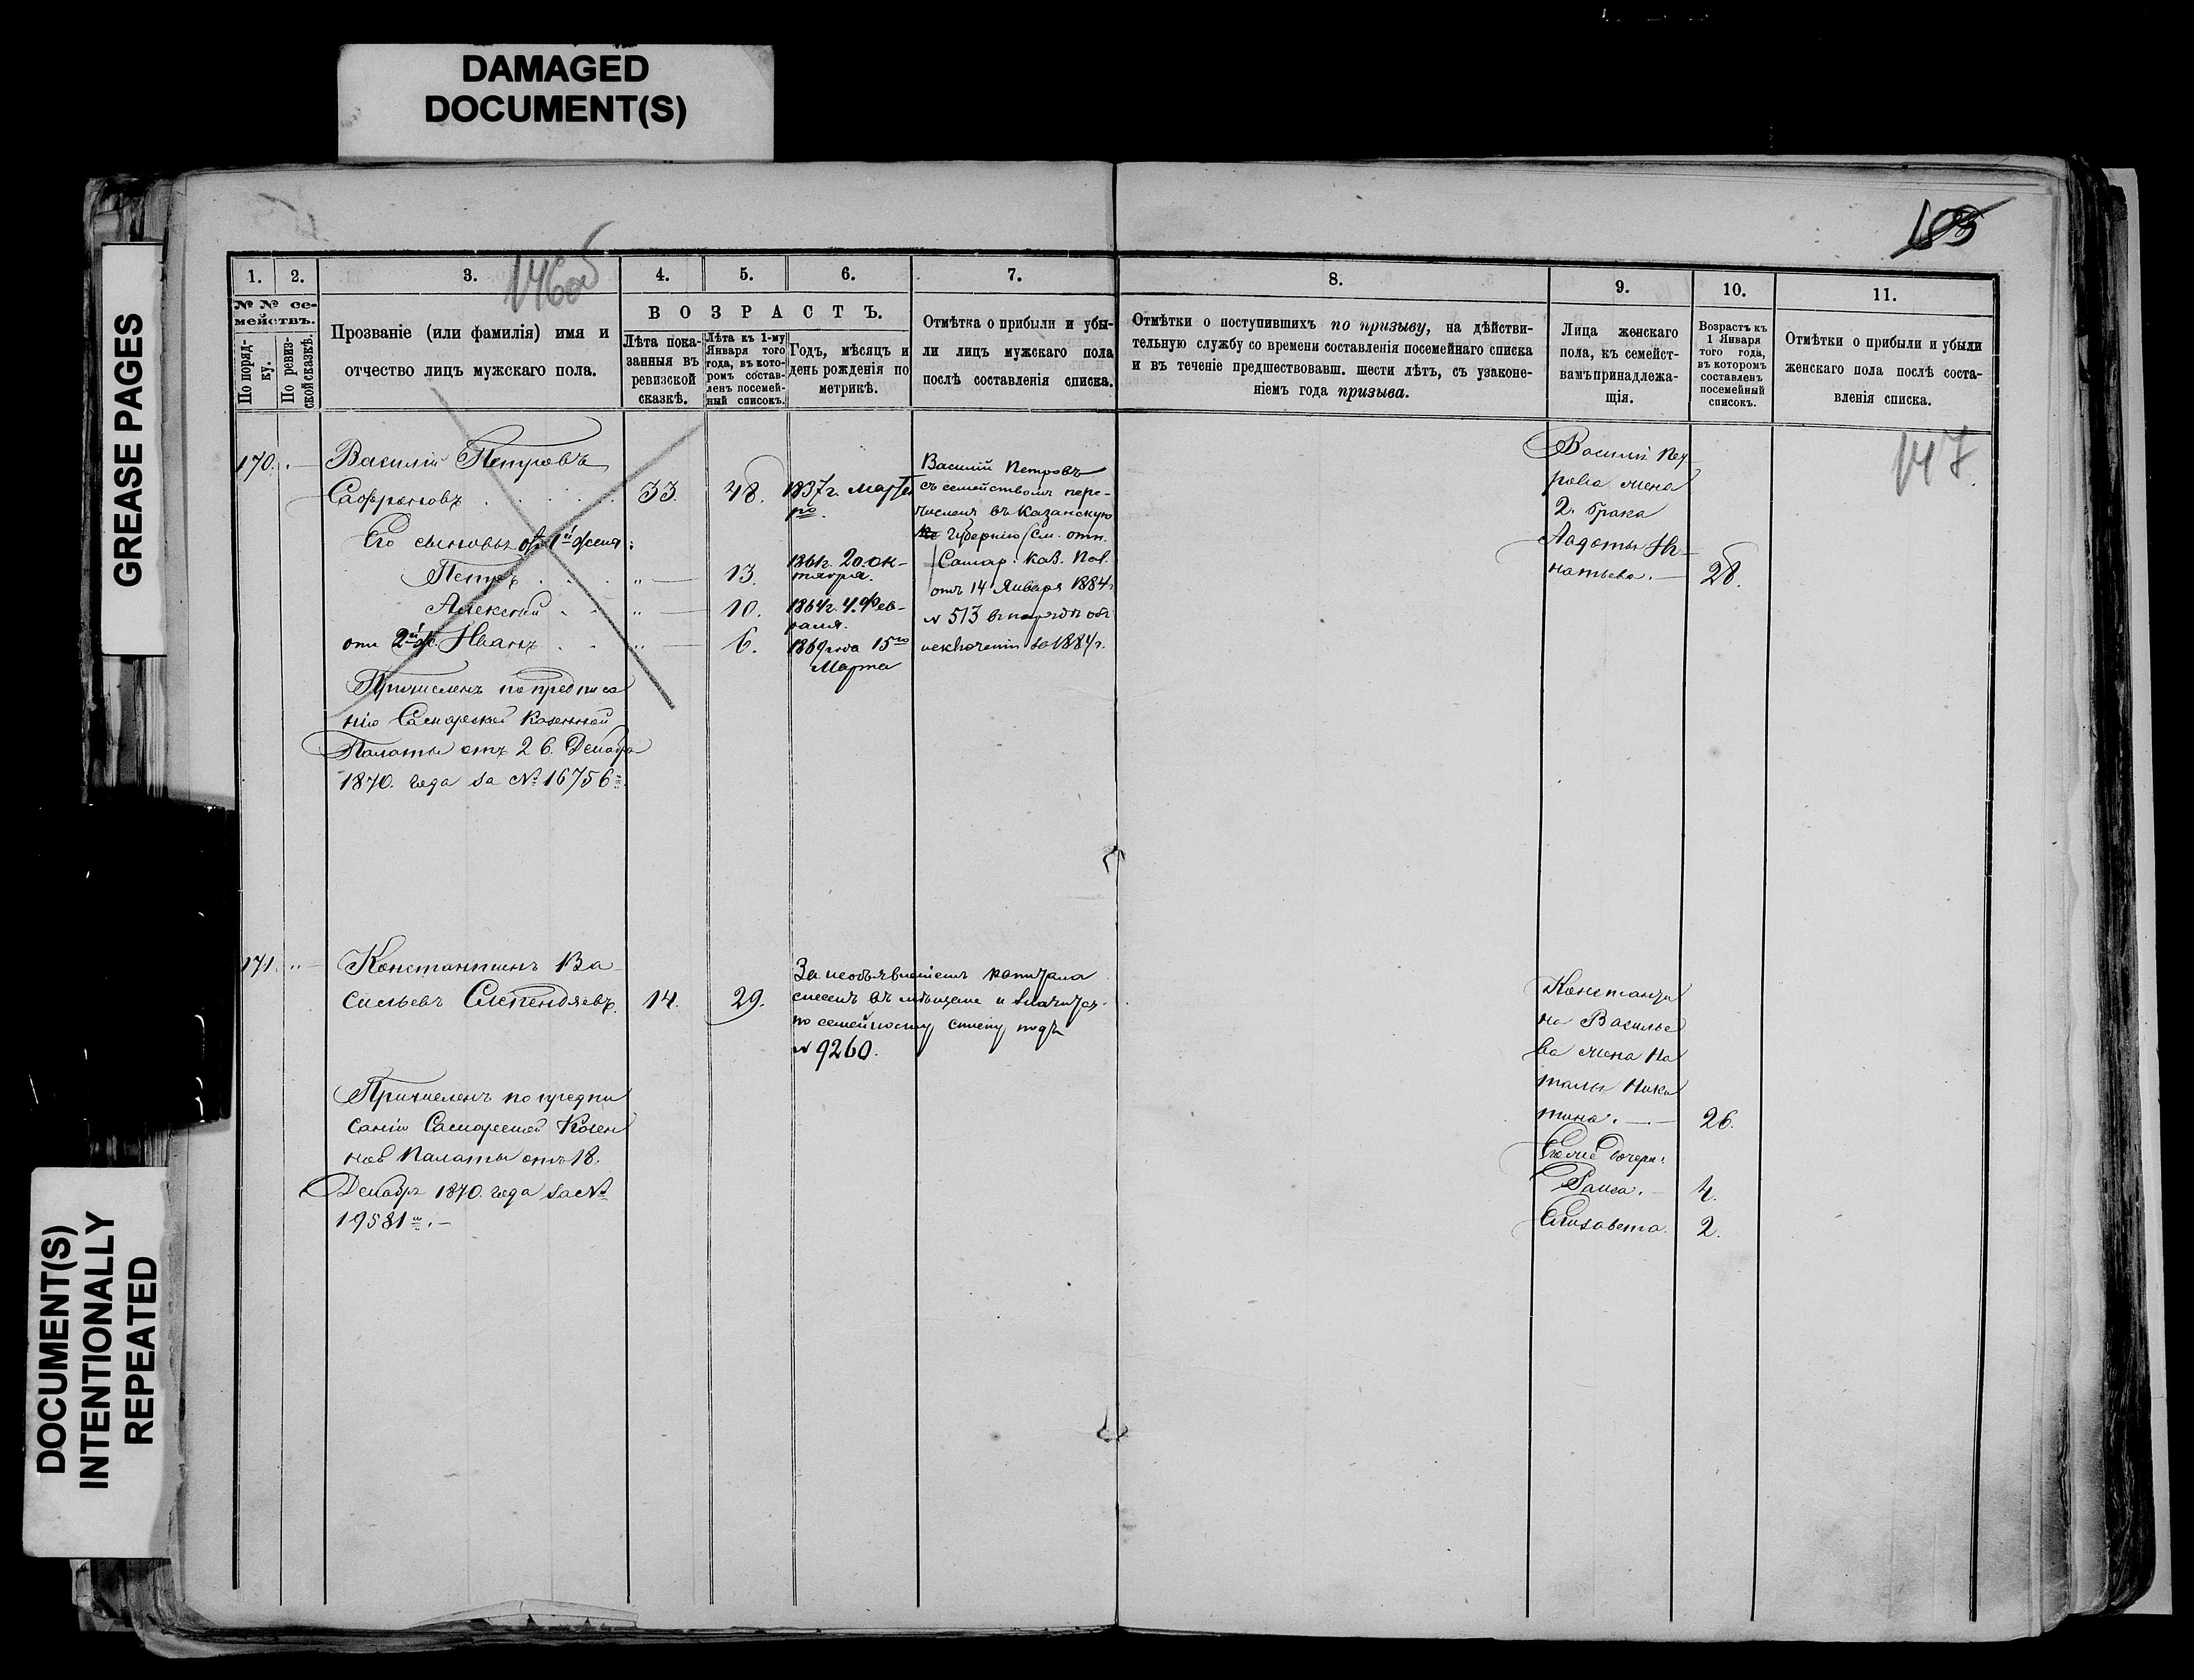 DAMAGED
DOCUMENT(S)
GREASE PAGES
DOCUMENT(S)
INTENTIONALLY
REPEATED
146об
1.
2.
3.
4.
5.
6.
7.
8.
9.
10.
11.
№ № се-
мействъ.
По поряд-
ку.
По ревиз-
ской сказкѣ.
Прозваніе (или фамилія) имя и
отчество лицъ мужскаго пола.
ВОЗРАСТЪ.
Лѣта пока-
занныя въ
ревизской
сказкѣ.
Лѣта къ 1-му
Января того
года, въ кото-
ромъ состав-
ленъ посемей-
ный списокъ.
Годъ, мѣсяцъ и
день рожденія по
метрикѣ.
Отмѣтка о прибыли и убы-
ли лицъ мужскаго пола
послѣ составленія списка.
Отмѣтки о поступившихъ по призыву, на дѣйстви-
тельную службу со времени составленія посемейнаго списка
и въ теченіе предшествовавш. шести лѣтъ, съ узаконе-
ніемъ года призыва.
Лица женскаго
пола, къ семейст-
вамъ принадлежа-
щія.
Возрастъ къ
1 Января
того года,
въ которомъ
составленъ
посемейный
списокъ.
Отмѣтки о прибыли и убыли
женскаго пола послѣ соста-
вленія списка.
147.
170. Василій Петровъ
33. 48. 1837г.
Его сыновья отъ 1й жены:
Петръ 13. 1861г. 20. ок-
тября.
Алексѣй 10. 1864г. 4. Фев-
раля.
отъ 2й ж. Иванъ 6. 1869 года 15го
Марта
Причисленъ по предписа
нію Самарской Казенной
Палаты отъ 26. Декабря
1870. года за № 16756
Василій Петровъ
съ семействомъ пере-
численъ въ Казанскую
Губернію (см. отн.
Самар. Каз. Пал.
отъ 14 Января 1884г
№ 513
исключеніи 1884г.
Василія Пет
рова жена
2. брака
Агафья Иг-
натьева. 28.
171. Константинъ Ва-
сильевъ 14. 29.
Причисленъ по предпи
санію Самарской Казен
ной Палаты отъ 18.
Декабря 1870. года за №
19581
За необъявленіемъ капитала
въ мѣщане и значится
по семейному списку подъ
№ 9260.
Константи
на Василье
ва жена На
талья Ники
тина. 26.
дочери:
Раиса. 4.
Елизавета. 2.